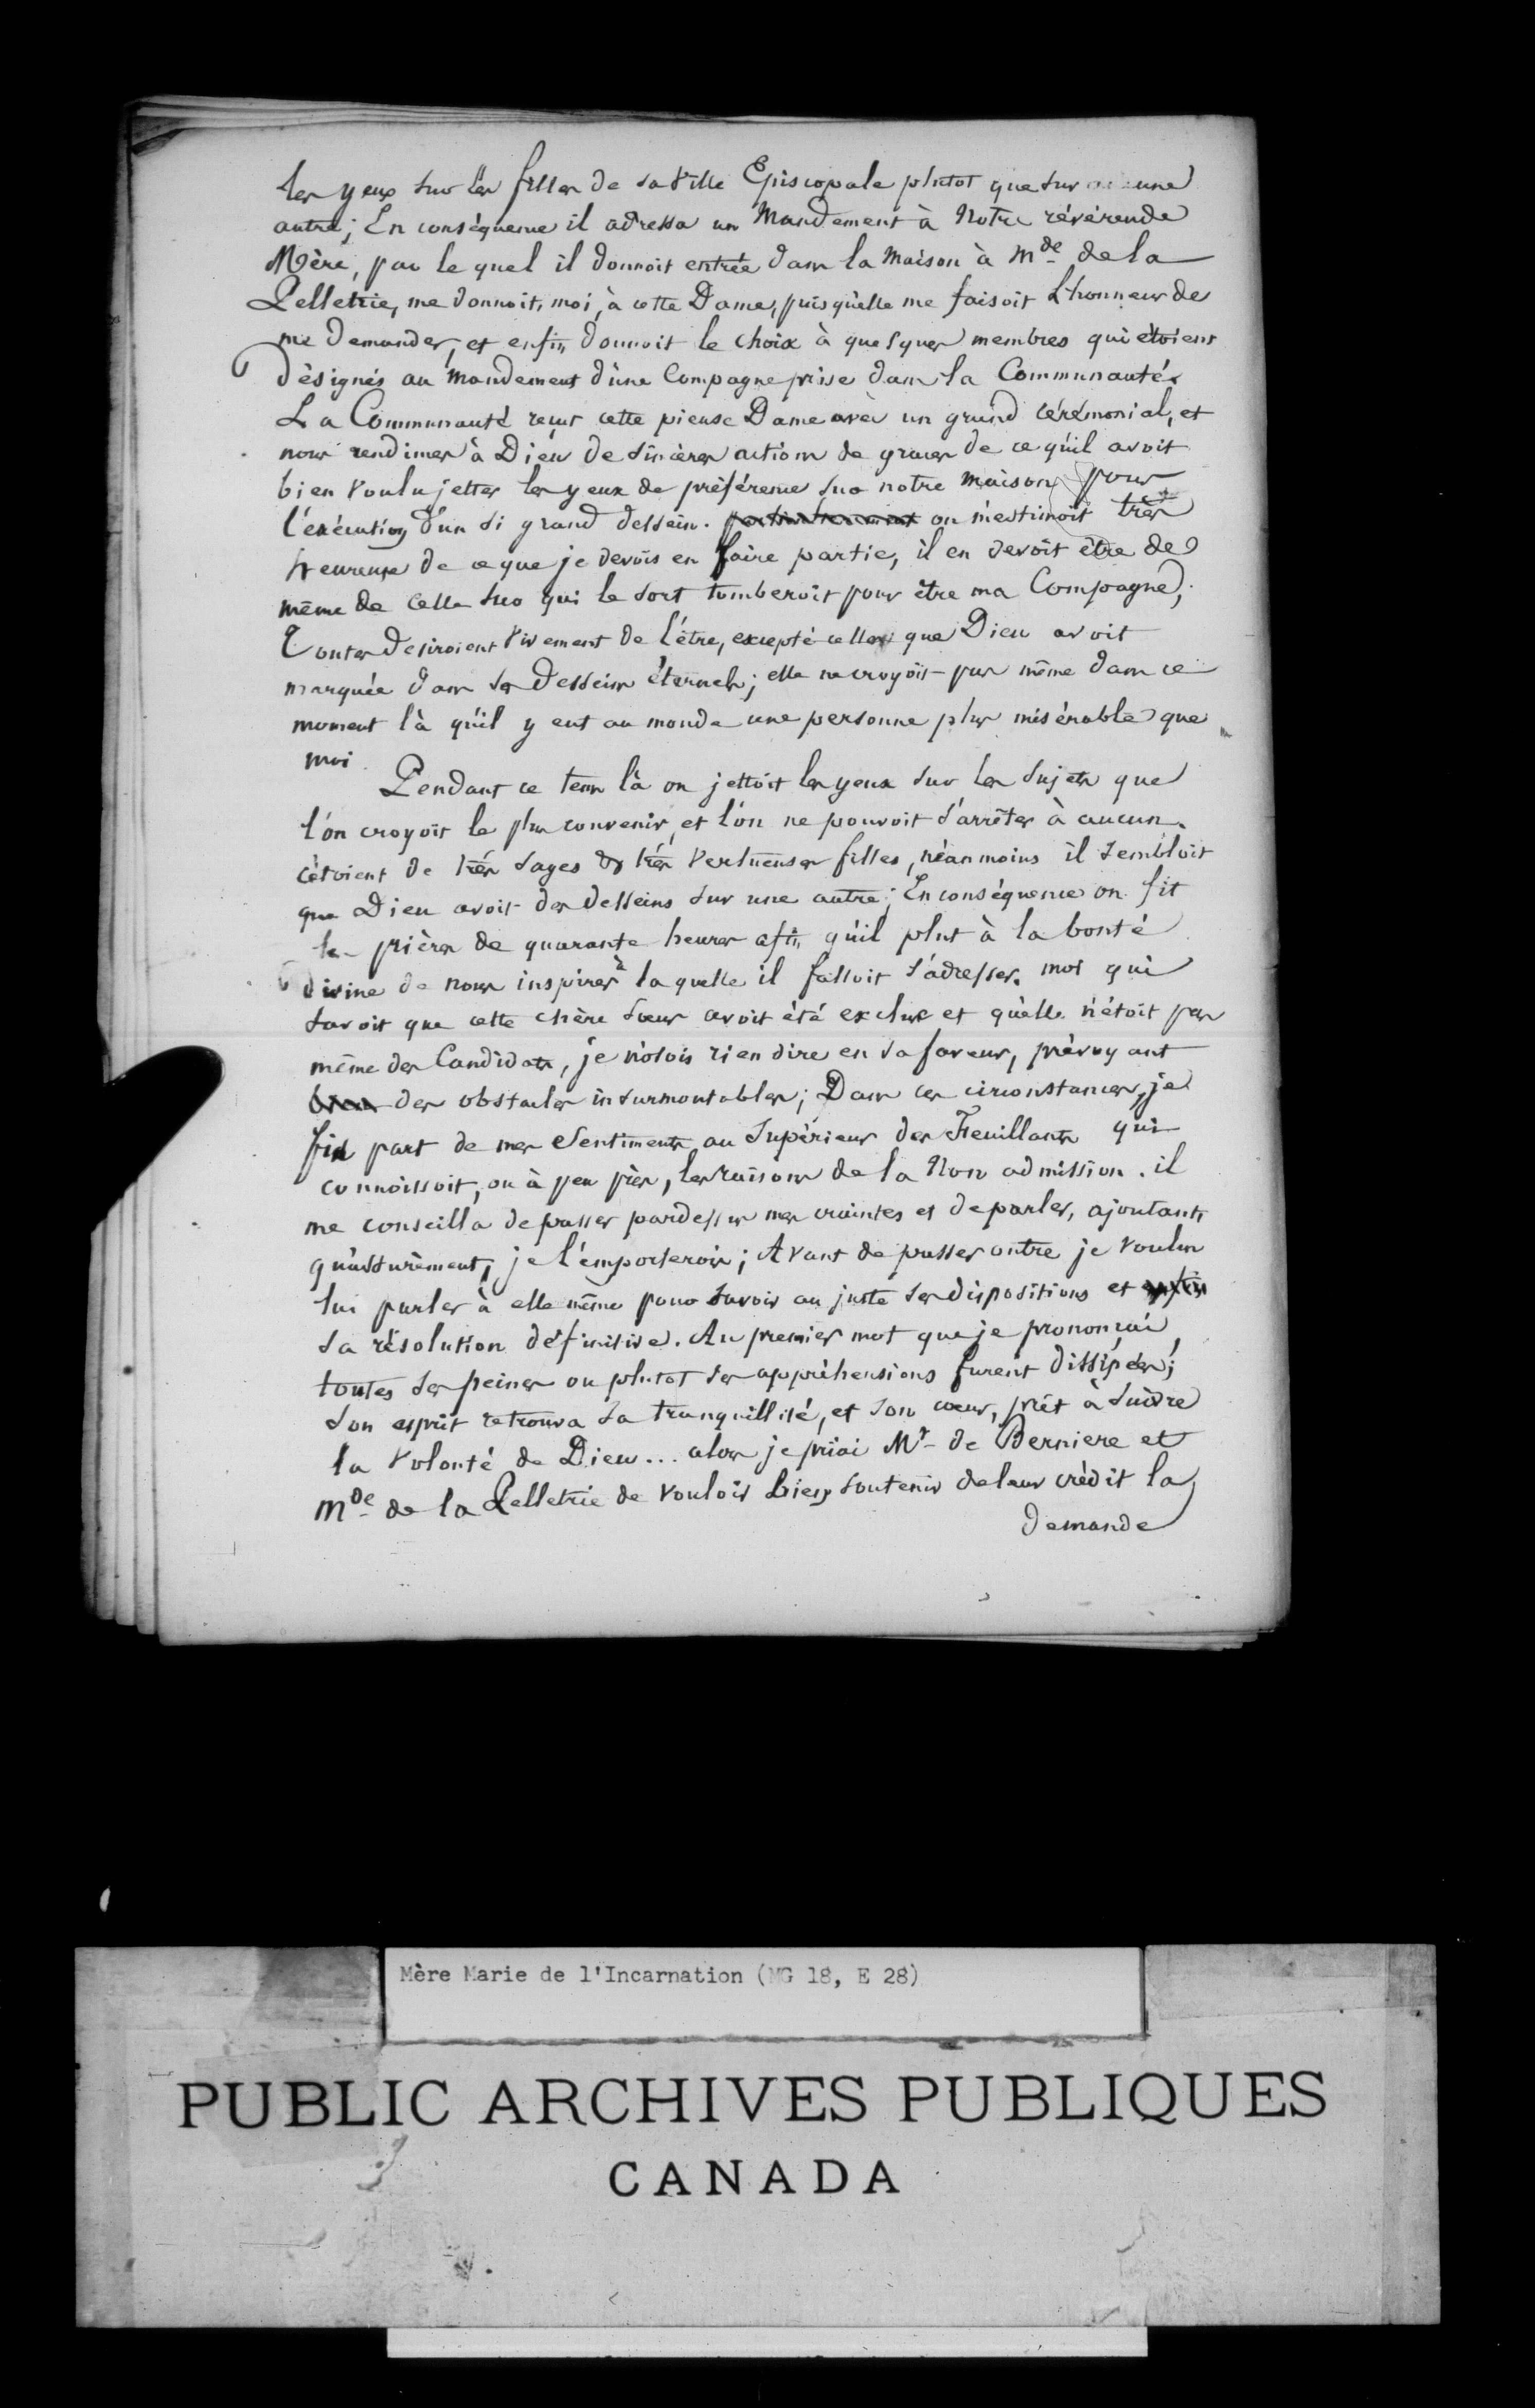 les yeux sur les filles de sa Ville Episcopale plutot que sur aucune
autre; En conséquence il adressa un Mandement à Notre révérende
Mère, par le quel il donnoit entrée dans la Maison à Mde de la
Pelletrie, me donnoit, moi, à cette Dame, puis qu'elle me faisoit L'honneur de
me demander, et enfin donnoit le choix à quelques membres qui étoient
désignés au mandement d'une Compagne prise dans la Communauté.
La Communauté reçut cette pieuse Dame avec un grand cérémonial, et
nous rendimes à Dieu de sincères actions de graces de ce qu'il avoit
bien voulu jetter les yeux de préférence sur notre maison pour
l'exécution d'un si grand dessein. on m'estimoit très
heureuse de ce que je devois en faire partie, il en devoit être de
même de celle sur qui le sort tomberoit pour être ma Compagne;
Toutes desiroient vivement de l'être, excepté celle que Dieu avoit
marquée dans ses desseins éternels; elle ne croyoit pas même dans ce
moment là qu'il y eut au monde une personne plus misérable que
moi.
Pendant ce tems là on jettoit les yeux sur les sujets que
l'on croyoit le plus convenir, et l'on ne pouvoit s'arrêter à aucun.
c'étoient de très sages & très vertueuses filles, néanmoins il sembloit
que Dieu avoit des desseins sur une autre; En conséquence on fit
les prières de quarante heures afin qu'il plut à la bonté
divine de nous inspirer à laquelle il falloit s'adresser. moi qui
savoit que cette chère sœur avoit été exclue et qu'elle n'étoit pas
même des Candidats, je n'osois rien dire en sa faveur, prévoyant
bien des obstacles insurmontables; Dans ces circonstances, je
fis part de mes sentiments au Supérieur des Feuillants qui
connoissoit, ou à peu près, les raisons de la Non admission. il
me conseilla de passer pardessus mes craintes et de parler, ajoutant
qu'assurément, je l'emporterois; Avant de passer outre je voulus
lui parler à elle même pour savoir au juste ses dispositions et enfin
sa résolution définitive. Au premier mot que je prononçai,
toutes ses peines ou plutot ses appréhensions furent dissipées;
son esprit retrouva sa tranquillité, et son cœur, prêt à suivre
la volonté de Dieu... alors je priai Mr de Berniere et
Mde de la Pelletrie de vouloir bien soutenir de leur crédit la
demande
Mère Marie de l'Incarnation (MG 18, E 28)
PUBLIC ARCHIVES PUBLIQUES
CANADA